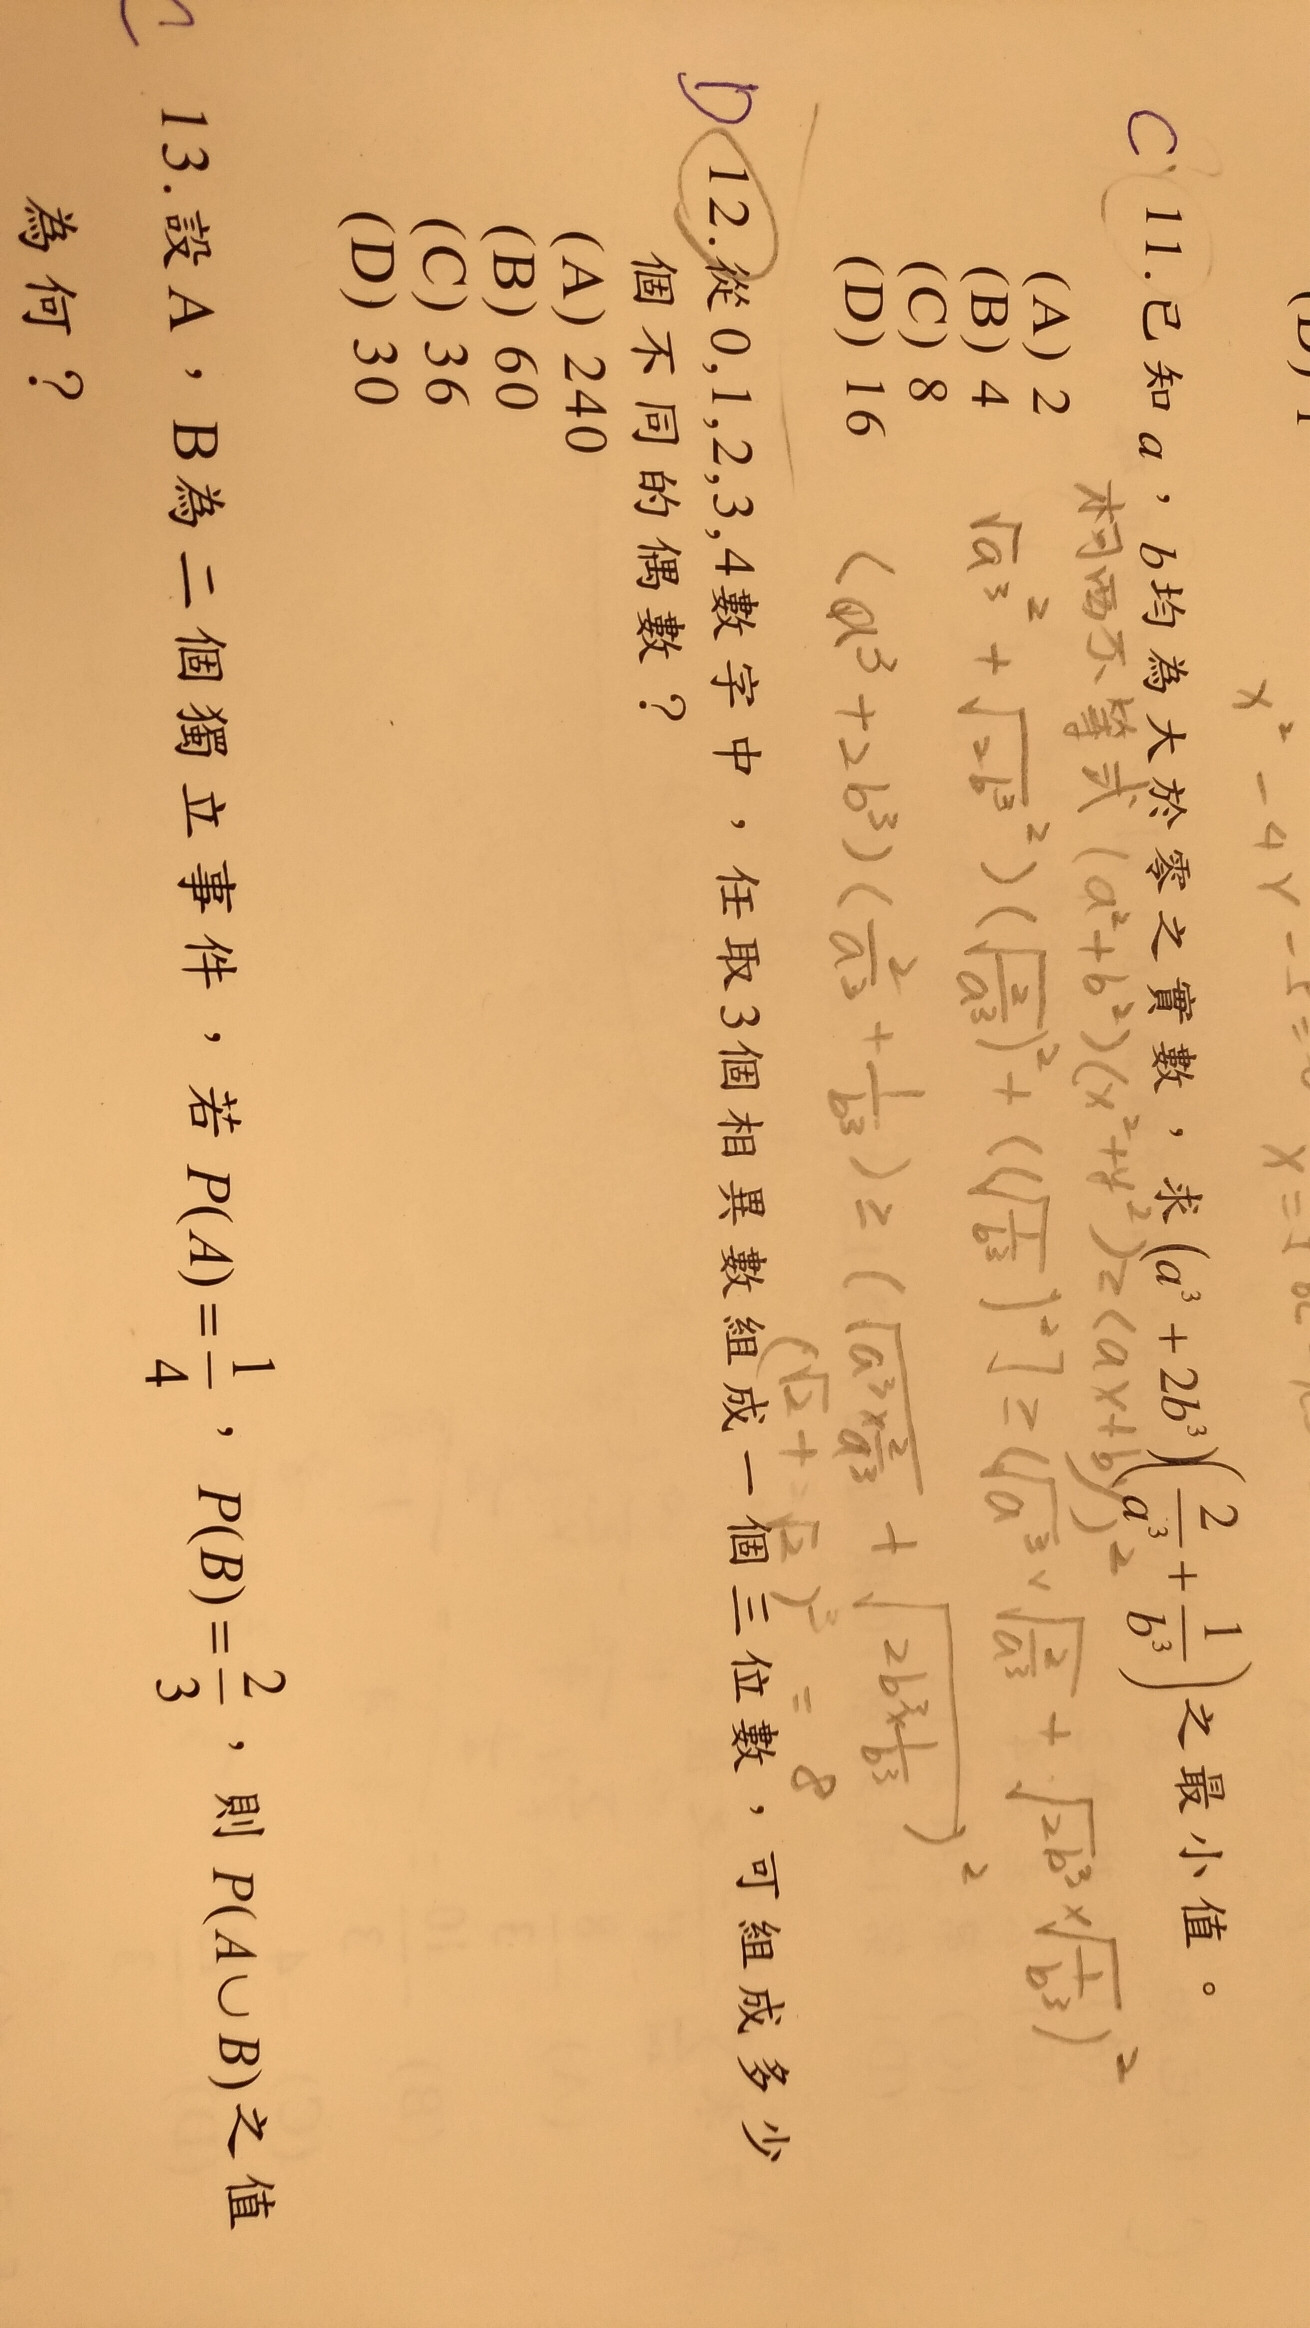 x² - 4x - 5 = 0
C 11. 已知 a，b均為大於零之實數，求(a³ + 2b³)(2/a³ + 1/b³)之最小值。
(A) 2
(B) 4
(C) 8
(D) 16
柯西不等式 (a²+b²)(x²+y²)≥(ax+by)²
√a³² + √2b³²)(√2/a³)² + (√1/b³)²] ≥ (√a³ × √2/a³ + √2b³ × √1/b³)²
(a³+2b³)(2/a³ + 1/b³) ≥ (√a³×2/a³ + √2b³×1/b³)²
(√2 + √2)² = 8
D 12. 從0,1,2,3,4數字中，任取3個相異數組成一個三位數，可組成多少
個不同的偶數？
(A) 240
(B) 60
(C) 36
(D) 30
13. 設A，B為二個獨立事件，若P(A)=1/4，P(B)=2/3，則P(A∪B)之值
為何？